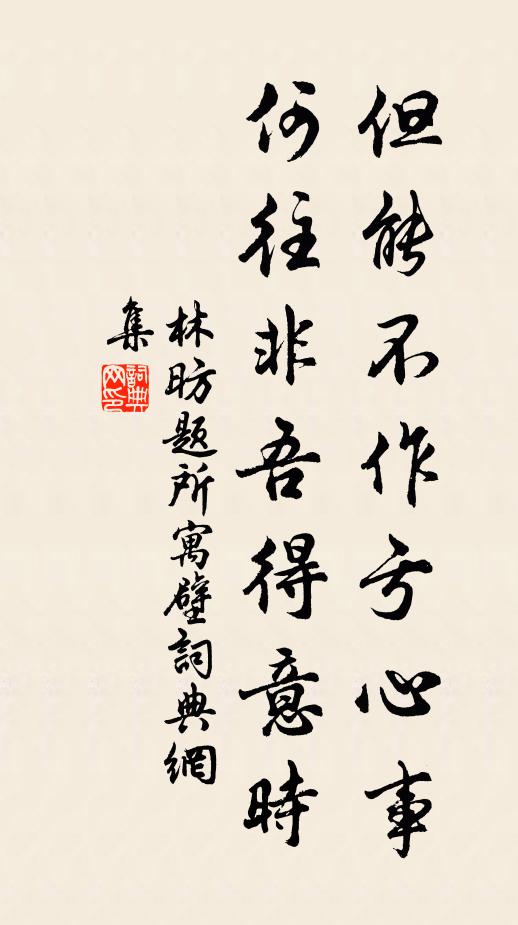 但能不作亏心事
何往非吾得意時
林昉题所寓壁詞典網
集
詞典网印